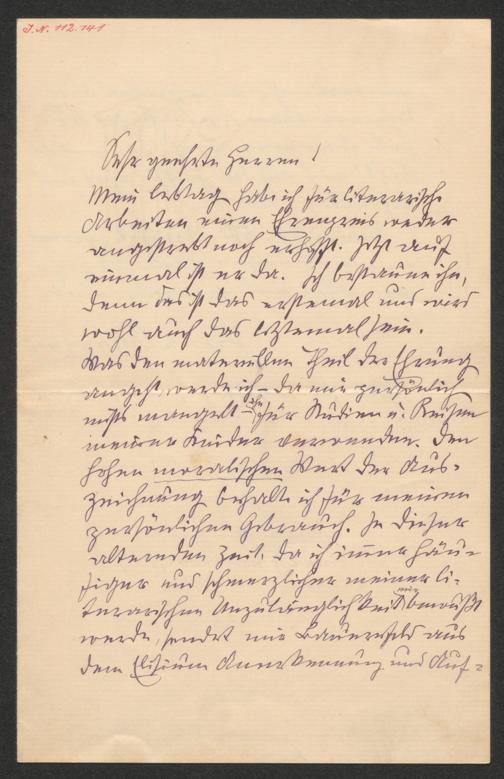 J.N. 112.141
Sehr geehrte Herren!
Mein lebtag habe ich für literarische
Arbeiten einen Ehrenpreis weder
angestrebt noch erhofft. Jetzt auf
einmal ist er da. Ich bestaune ihn,
denn das ist das erstemal und wird
wohl auch das letztemal sein.
Was den materiellen Theil der Ehrung
angeht, werde ich – da mir persönlich
nichts mangelt – ihn für Studien u. Reisen
meiner Kinder verwenden. Den
hohen moralischen Wert der Aus-
zeichnung behalte ich für meinen
persönlichen Gebrauch. In dieser
alternden Zeit, da ich immer häu-
figer und schmerzlicher meiner li-
terarischen Unzulänglichkeit mir bewußt
werde, sendet mir Bauernfeld aus
dem Elisium Anerkennung und Auf-